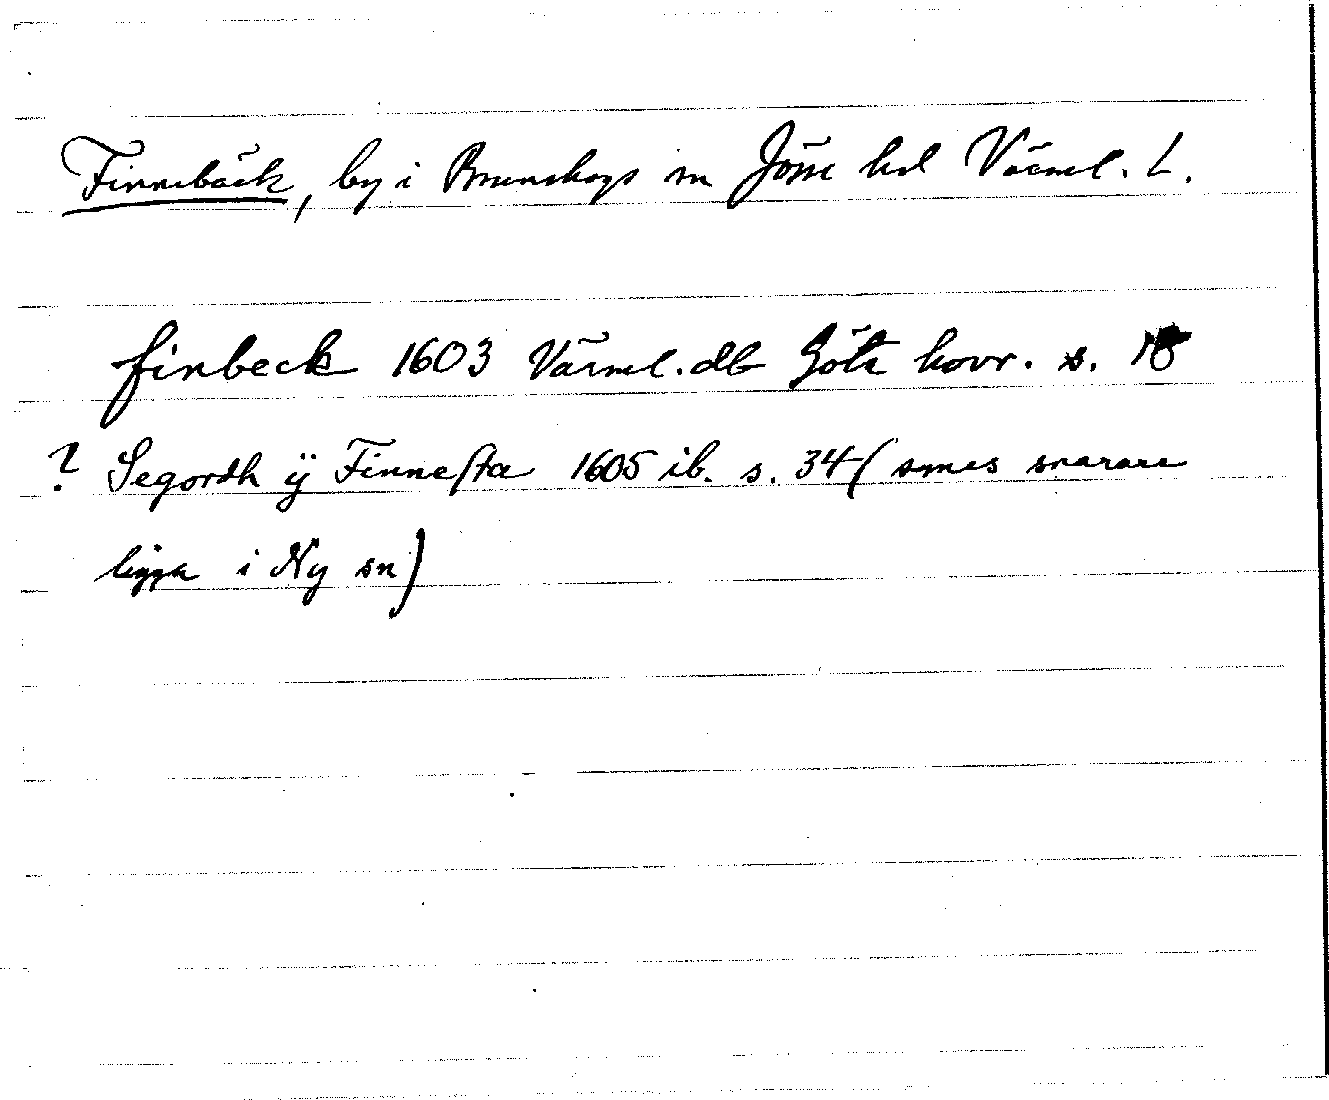 Finnebäck, by i Brunskogs sn Jösse hd Värml. L.
finbeck 1603 Värml. db Göta hovr. s. 
? Segordh ÿ Finnesta 1605 ib. s. 34 (synes snarare
ligga i Ny sn)